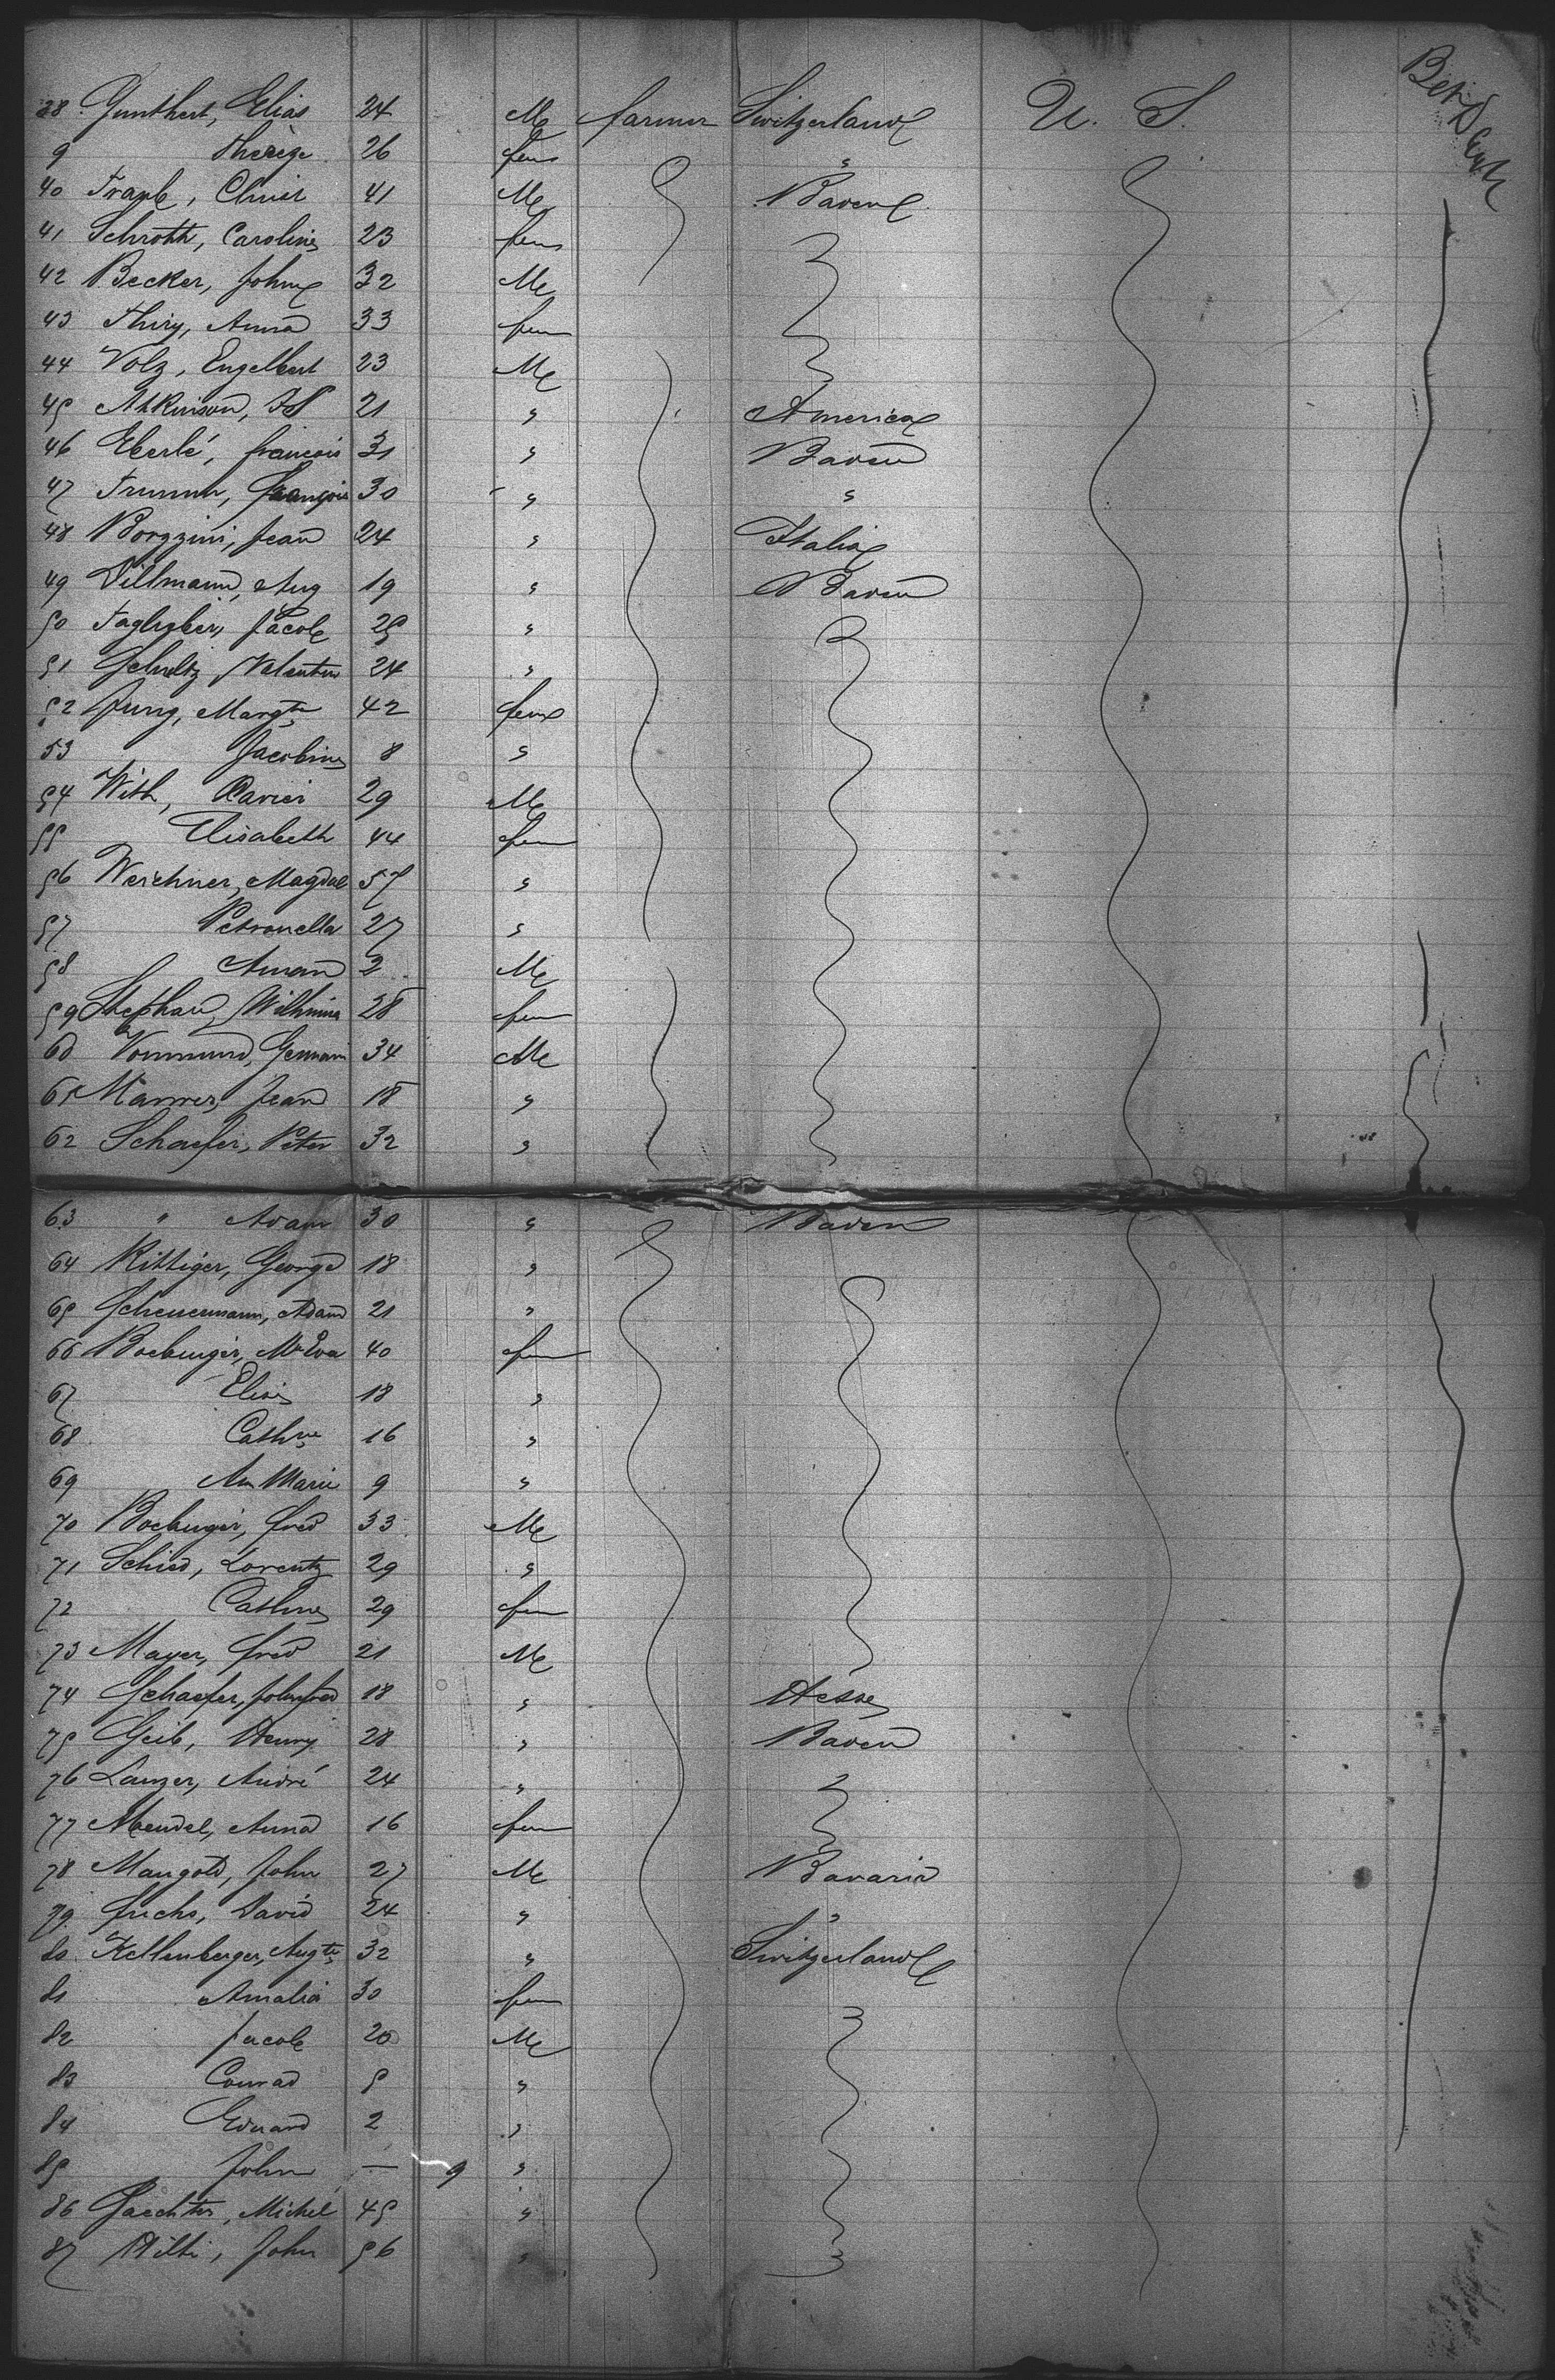 38 Gunthert, Elias 24 M farmer Switzerland U. S. Bet Deck
9 Therèse 26 fem "
40 Traple, Christ 41 M Baden
41 Schroth, Caroline 23 fem
42 Becker, John 32 M
43 Thiry, Anna 33 fem
44 Volz, Engelbert 23 M
45 Atkinson, 21 " America
46 Eberlé, françois 31 " Baden
47 françois 30 " "
48 Borgzini, Jean 24 " Italia
49 Dillmann, Aug 19 " Baden
50 Jacob 25 "
51 Schultz, Valentin 24 "
52 Jung, Margte 42 fem
53 Jacobine 8 "
54 With, Xavier 29 M
55 Elisabeth 44 fem
56 Weichner, Magdal 57 "
57 Petronella 27 "
58 Aman 2 M
59 Stephan, Wilhmina 28 fem
60 Vormund, Germain 34 M
61 Jean 18 "
62 Schaefer, Peter 32 "
63 " Adam 30 " Baden
64 Rittiger, George 18 "
65 Scheuermann, Adam 21 "
66 Boeburger, M Eva 40 fem
67 Elise 18 "
68 Cathne 16 "
69 An Marie 9 "
70 Boeburger, fred 33 M
71 Schied, Lorentz 29 "
72 Cathne 29 fem
73 Mayer, fred 21 M
74 Schaefer, John fred 18 " Hesse
75 Geib, Henry 28 " Baden
76 Lanzer, André 24 "
77 Mendel, Anna 16 fem
78 Mangold, John 27 M Bavaria
79 Fuchs, David 24 " "
80 Kellenberger, Augte 32 " Switzerland
81 Amalia 30 fem
82 Jacob 20 M
83 Conrad 5 "
84 Eduard 2 "
85 John — 9 "
86 Gaechter, Michel 45 "
87 Hilti, John 56 "